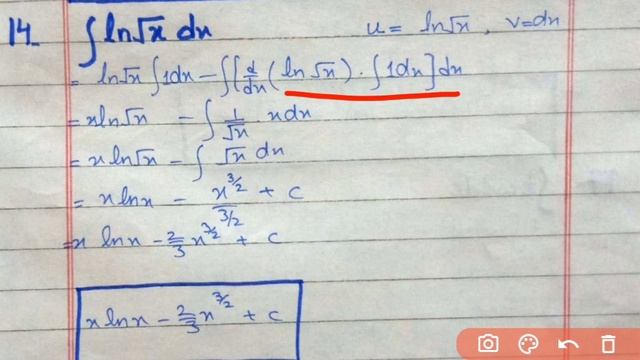 14. ∫ ln√x dx        u = ln√x , v = dx
= ln√x ∫1dx − ∫[d/dx (ln√x) · ∫1dx] dx
= x ln√x − ∫ 1/√x · x dx
= x ln√x − ∫ √x dx
= x ln x − x^(3/2)/(3/2) + c
= x ln x − 2/3 x^(3/2) + c
x ln x − 2/3 x^(3/2) + c